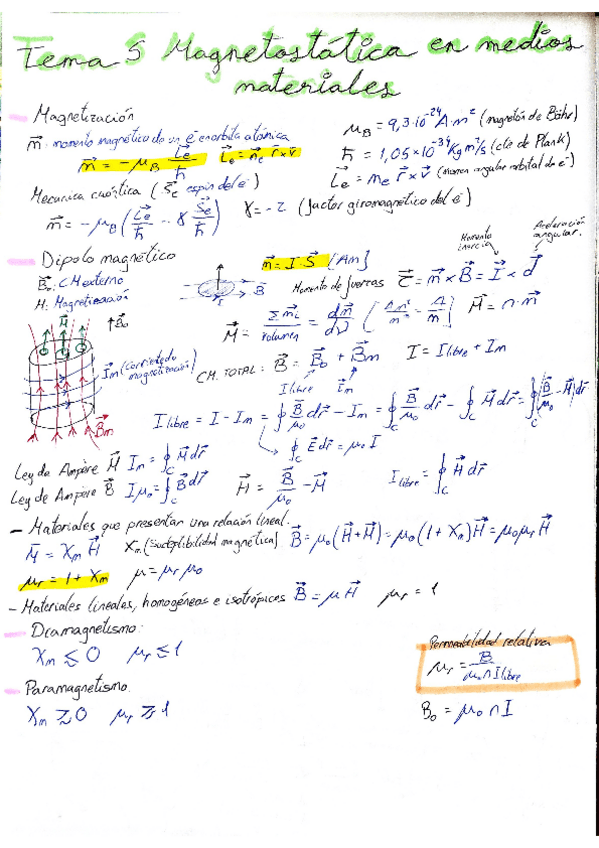 Tema 5 Magnetostática en medios
materiales
Magnetización
m⃗: momento magnético de un e⁻ en orbita atómica
m⃗ = -μ_B L⃗e/ħ   L⃗e = me r⃗ x v⃗
μ_B = 9,3·10⁻²⁴ A·m² (magnetón de Böhr)
ħ = 1,05×10⁻³⁴ Kg m²/s (cte de Plank)
L⃗e = me r⃗ x v⃗ (momen angular orbital de e⁻)
Mecanica cuántica (S⃗e espin del e⁻)
m⃗ = -μ_B (L⃗e/ħ - γ S⃗e/ħ)   γ = -2 (factor giromagnético del e⁻)
Dipolo magnético
B⃗o: CM externo
M: Magnetización
m⃗ = I·S⃗ [Am]
Momento inercia
Aceleración angular.
Momento de fuerzas τ⃗ = m⃗ x B⃗ = I⃗ x α⃗
B⃗
I
M⃗
↑B⃗o
Im (corriente de magnetización)
B⃗m
M⃗ = Σm⃗i/volumen = dm⃗/dV [Am²/m³ = A/m]   M⃗ = n·m⃗
CM. TOTAL: B⃗ = B⃗o + B⃗m   I = Ilibre + Im
Ilibre   Im
Ilibre = I - Im = ∮c B⃗/μo dr⃗ - Im = ∮c B⃗/μo dr⃗ - ∮c M⃗ dr⃗ = ∮c (B⃗/μo - M⃗) dr⃗
∮c B⃗ dr⃗ = μo I
Ley de Ampère M⃗ Im = ∮c M⃗ dr⃗
Ley de Ampère B⃗ Iμo = ∮c B⃗ dr⃗
H⃗ = B⃗/μo - M⃗   Ilibre = ∮c H⃗ dr⃗
- Materiales que presentan una relación lineal.
M⃗ = Xm H⃗   Xm (susceptibilidad magnética)   B⃗ = μo (H⃗ + M⃗) = μo (1 + Xm) H⃗ = μo μr H⃗
μr = 1 + Xm   μ = μr μo
- Materiales lineales, homogéneos e isotrópicos B⃗ = μ H⃗   μr = 1
Diamagnetismo:
Xm ≲ 0   μr ≲ 1
Paramagnetismo.
Xm ≳ 0   μr ≳ 1
Permeabilidad relativa
μr = B/μo n Ilibre
Bo = μo n I